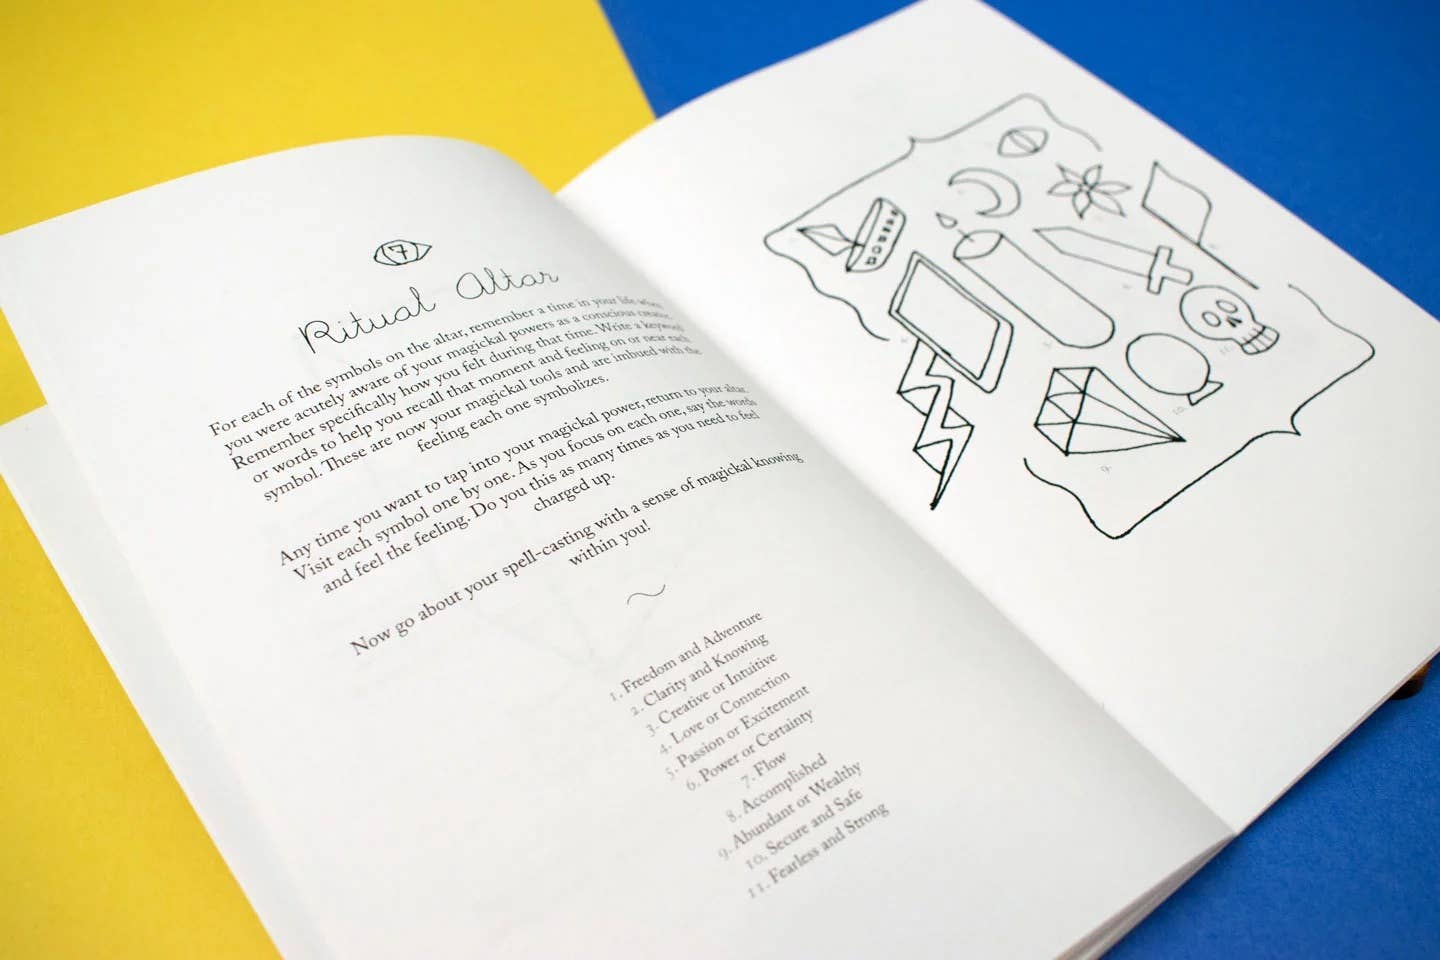 7
Ritual Altar
For each of the symbols on the altar, remember a time in your life when
you were acutely aware of your magickal powers as a conscious creator.
Remember specifically how you felt during that time. Write a keyword
or words to help you recall that moment and feeling on or near each
symbol. These are now your magickal tools and are imbued with the
feeling each one symbolizes.
Any time you want to tap into your magickal power, return to your altar.
Visit each symbol one by one. As you focus on each one, say the words
and feel the feeling. Do you this as many times as you need to feel
charged up.
Now go about your spell-casting with a sense of magickal knowing
within you!
1. Freedom and Adventure
2. Clarity and Knowing
3. Creative or Intuitive
4. Love or Connection
5. Passion or Excitement
6. Power or Certainty
7. Flow
8. Accomplished
9. Abundant or Wealthy
10. Secure and Safe
11. Fearless and Strong
11.
10.
9.